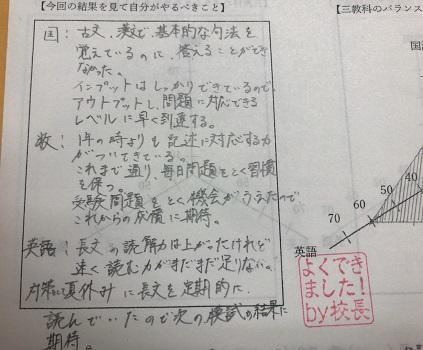 【今回の結果を見て自分がやるべきこと】
国：古文、漢文で、基本的な句法を
覚えているのに、答えることができ
なかった。
インプットはしっかりできているので、
アウトプットし、問題に対応できる
レベルに早く到達する。
数：1年の時よりも記述に対応する力
がついてきている。
これまで通り、毎日問題をとく習慣
を保つ。
受験問題をとく機会がふえたので
これからの成績に期待。
英語：長文の読解力は上がったけれど
速く読む力がまだまだ足りない。
対策に夏休みに長文を定期的に
読んでいたので次の模試の結果に
期待。
【三教科のバランス
国語
40
50
60
70
英語
よくでき
ました！
by校長